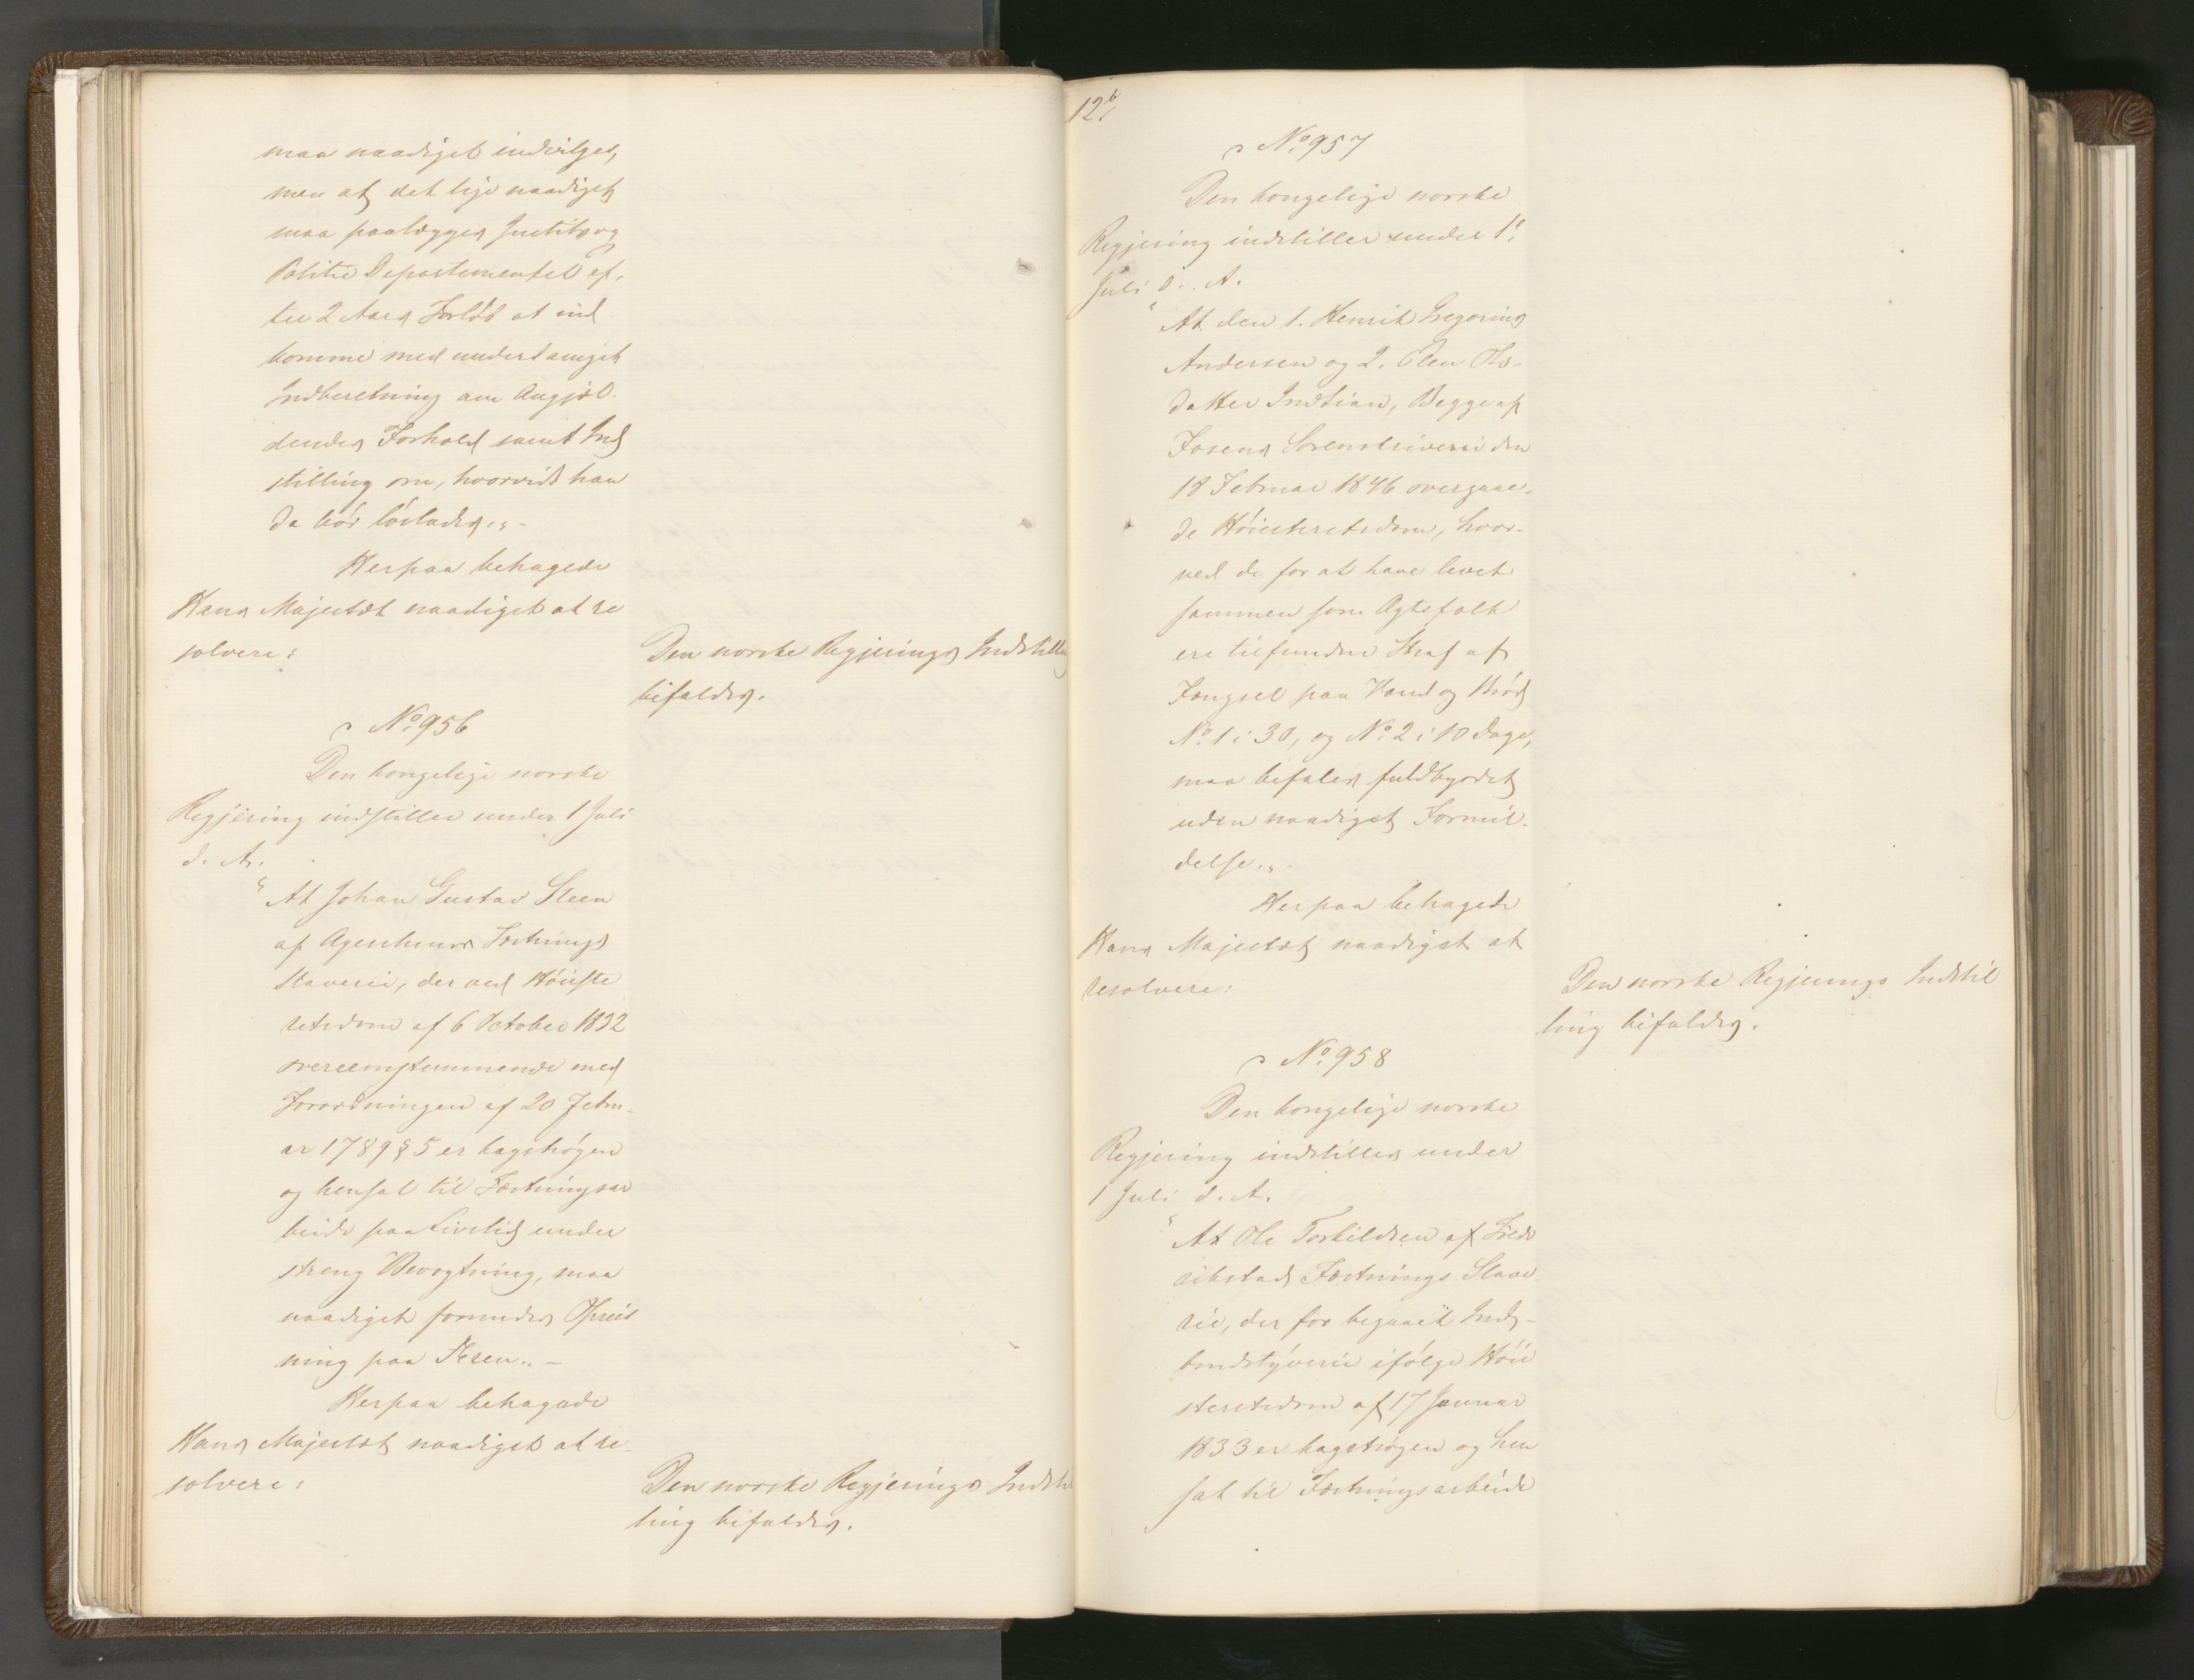 maa naadigst indvilges,
men at det lige naadigst
maa paalægges Justits og
Politie Departementet ef-
ter 2 Aars Forløb at ind
komme med underdanigst
Indberetning om Angjæl-
dendes Forhold samt Ind
stilling om, hvorvidt han
da bør løslades.„-
Herpaa behagede
Hans Majestæt naadigst at re
solvere:
Den norske Regjerings Indstilling
bifaldes.
No 956
Den kongelige norske
Regjering indstiller under 1 Juli
d. A.
"At Johan Gustav Steen
af Agershuus Fæstnings
Slaverie, der ved Høieste
retsdom af 6 October 1832
overeensstemmende med
Forordningen af 20 Febru-
ar 1789 § 5 er kagstrøgen
og hensat til Fæstningsar
beide paa Livstid under
streng Bevogtning, maa
naadigst forundes Opreis
ning paa Æren.„-
Herpaa behagede
Hans Majestæt naadigst at re-
solvere:
Den norske Regjerings Indstil
ling bifaldes.
126
No 957
Den kongelige norske
Regjering indstiller under 1.
Juli d. A.
"At den 1. Henrik Gregorius
Andersen og 2. Elen Ols-
datter Indtian, Begge af
Fosens Sorenskriverie den
18 Februar 1846 overgaae-
de Høiesteretsdom, hvor-
ved de for at have levet
sammen som Ægtefolk
ere tilfundne Straf af
Fængsel paa Vand og Brød
No 1 i 30, og No 2 i 10 Dage,
maa befales fuldbyrdet
uden naadigst Formil-
delse.„
Herpaa behagede
Hans Majestæt naadigst at
resolvere:
Den norske Regjerings Indstil
ling bifaldes.
No 958
Den kongelige norske
Regjering indstiller under
1 Juli d. A.
"At Ole Torkildsen af Fred
rikstads Fæstnings Slave
rie, der for begaaet Ind-
brudstyverie ifølge Høie
steretsdom af 17 Januar
1833 er kagstrøgen og hen
sat til Fæstningsarbeide